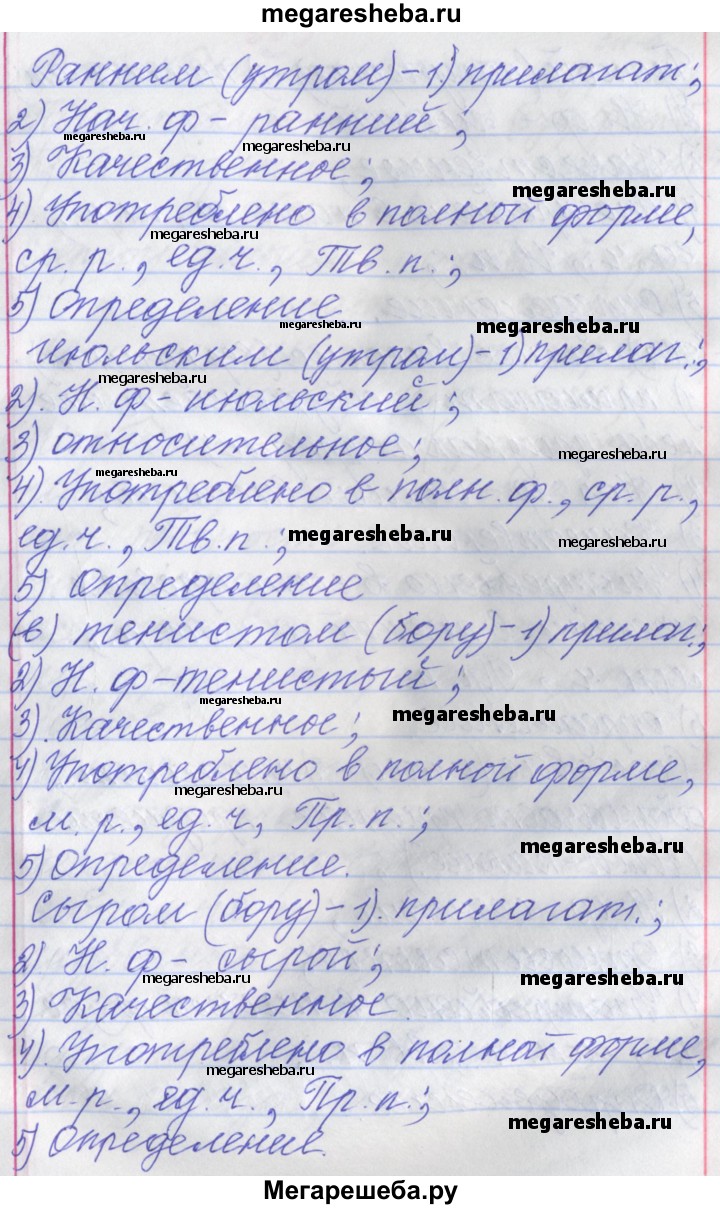 megaresheba.ru
Ранним (утром) – 1.) прилагат.;
2) Нач. ф – ранний;
megaresheba.ru
megaresheba.ru
3) Качественное;
megaresheba.ru
4). Употреблено в полной форме,
megaresheba.ru
ср. р., ед. ч., Тв. п.;
5) Определение
megaresheba.ru
megaresheba.ru
июльским (утром) – 1) прилаг.;
megaresheba.ru
2). Н. ф – июльский;
3) относительное;
megaresheba.ru
megaresheba.ru
4) Употреблено в полн. ф., ср. р.,
ед. ч., Тв. п.;
megaresheba.ru
megaresheba.ru
5) Определение
(в) тенистом (бору) – 1) прилаг.;
2) Н. ф – тенистый;
megaresheba.ru
3). Качественное;
megaresheba.ru
4) Употреблено в полной форме,
megaresheba.ru
м. р., ед. ч, Пр. п.;
megaresheba.ru
5) Определение.
Сыром (бору) – 1). прилагат.;
2) Н. ф – сырой;
megaresheba.ru
megaresheba.ru
3) Качественное
4). Употреблено в полной форме,
megaresheba.ru
м. р., ед. ч., Пр. п.;
megaresheba.ru
5) Определение.
Мегарешеба.ру